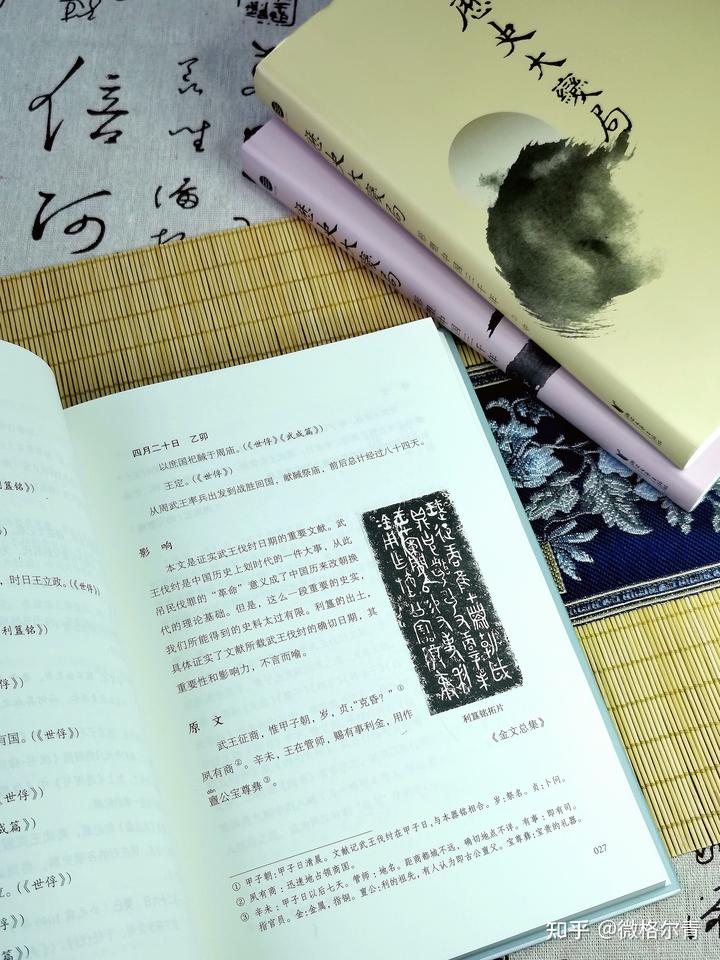 歷史大變局
歷史大變局
歷史大變局
信
河
四月二十日 乙卯
以庶国祀馘于周庙。(《世俘》《武成篇》)
王定。(《世俘》)
从周武王率兵出发到战胜回国，献馘祭庙，前后总计经过八十四天。
影 响
本文是证实武王伐纣日期的重要文献。武
王伐纣是中国历史上划时代的一件大事，从此
吊民伐罪的“革命”意义成了中国历来改朝换
代的理论基础。但是，这么一段重要的史实，
我们所能得到的史料太过有限。利簋的出土，
具体证实了文献所载武王伐纣的确切日期，其
重要性和影响力，不言而喻。
利簋铭拓片
原 文
武王征商，惟甲子朝，岁，贞：“克昏？”①
夙有商②。辛未，王在管师，赐有事利金，用作
dǎn
亶公宝尊彝③。
《金文总集》
① 甲子朝：甲子日清晨。文献记武王伐纣在甲子日，与本器铭相合。岁：祭名。贞：卜问。
② 夙有商：迅速地占领商国。
③ 辛未：甲子日以后七天。管师：地名。距商都城不远，确切地点不详。有事：即有司。
指官员。金：金属，指铜。亶公：利的祖先，有人认为即古公亶父。宝尊彝：宝贵的礼器。
027
利簋铭》)
，时日王立政。(《世俘》)
利簋铭》)
俘》)
有国。(《世俘》)
世俘》)
成篇》)
立。(《世俘》)
世俘》)
篇》)
知乎 @微格尔青